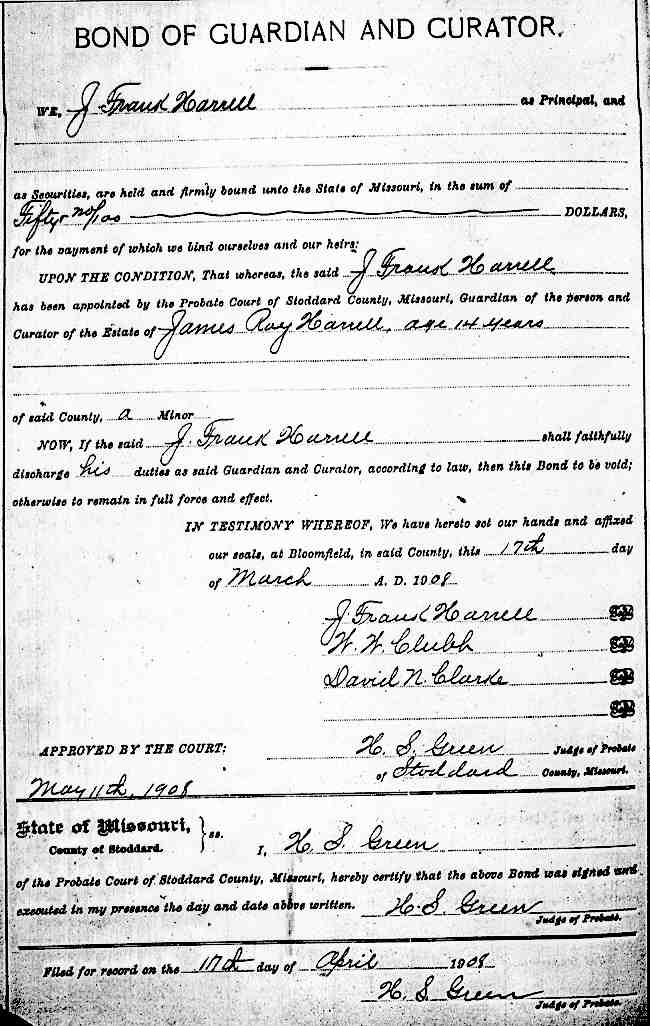 BOND OF GUARDIAN AND CURATOR.
WE, J Frank Harrell as Principal, and
as Securities, are held and firmly bound unto the State of Missouri, in the sum of
Fifty no/100 DOLLARS,
for the payment of which we bind ourselves and our heirs:
UPON THE CONDITION, That whereas, the said J Frank Harrell
has been appointed by the Probate Court of Stoddard County, Missouri, Guardian of the person and
Curator of the Estate of James Roy Harrell, age 14 years
of said County, a Minor
NOW, If the said J. Frank Harrell shall faithfully
discharge his duties as said Guardian and Curator, according to law, then this Bond to be void;
otherwise to remain in full force and effect.
IN TESTIMONY WHEREOF, We have hereto set our hands and affixed
our seals, at Bloomfield, in said County, this 17th day
of March A. D. 1908
J. Frank Harrell
W. W. Clubb
David N. Clarke
APPROVED BY THE COURT: H. S. Green Judge of Probate
of Stoddard County, Missouri.
May 11th, 1908
State of Missouri, } ss.
County of Stoddard. I, H. S. Green
of the Probate Court of Stoddard County, Missouri, hereby certify that the above Bond was signed and
executed in my presence the day and date above written. H. S. Green
Judge of Probate.
Filed for record on the 17th day of April 1908
H. S. Green
Judge of Probate.